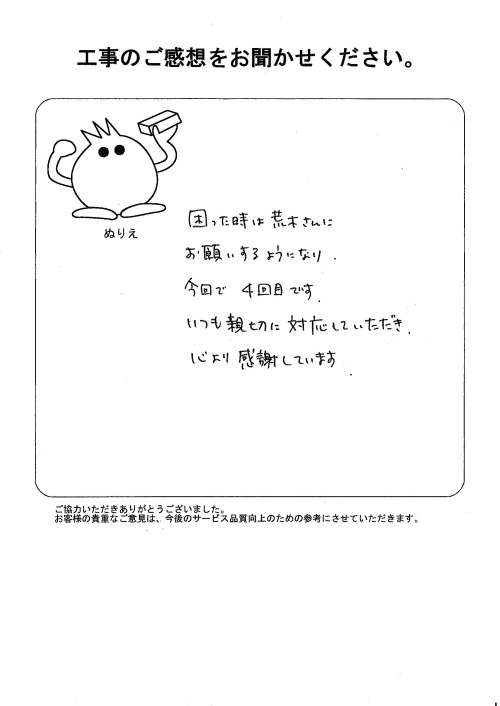 工事のご感想をお聞かせください。
ぬりえ
困った時は荒木さんに
お願いするようになり.
今回で 4回目です.
いつも親切に対応していただき.
心より感謝しています.
ご協力いただきありがとうございました。
お客様の貴重なご意見は、今後のサービス品質向上のための参考にさせていただきます。